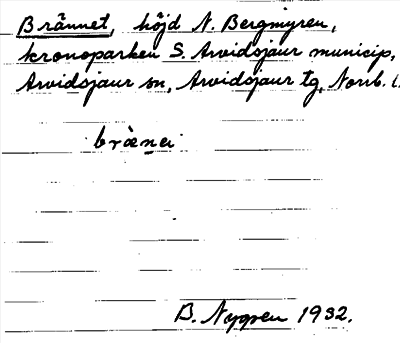 Brännet, höjd N. Bergmyren,
kronoparken S. Arvidsjaur municip,
Arvidsjaur sn, Arvidsjaur tg, Norrb. l.
B. Nygren 1932.